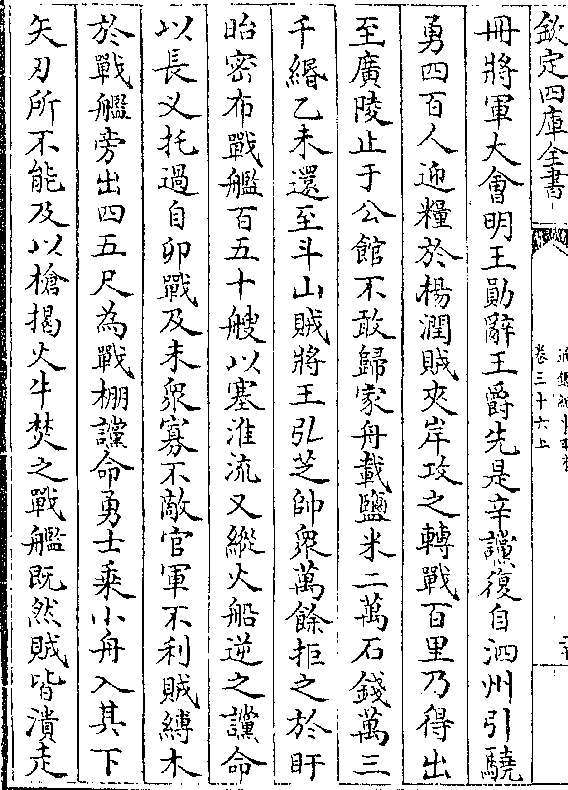 欽定四庫全書
卷三十六上
冊將軍大會明王勛辭王爵先是辛讜復自泗州引驍
勇四百人迎糧於楊潤賊夾岸攻之轉戰百里乃得出
至廣陵止于公館不敢歸家舟載鹽米二萬石錢萬三
千緡乙未還至斗山賊將王弘芝帥衆萬餘拒之於盱
眙密布戰艦百五十艘以塞淮流又縱火船逆之讜命
以長义托過自卯戰及未衆寡不敵官軍不利賊縛木
於戰艦旁出四五尺為戰棚讜命勇士乘小舟入其下
矢刃所不能及以槍揭火牛焚之戰艦既然賊皆潰走